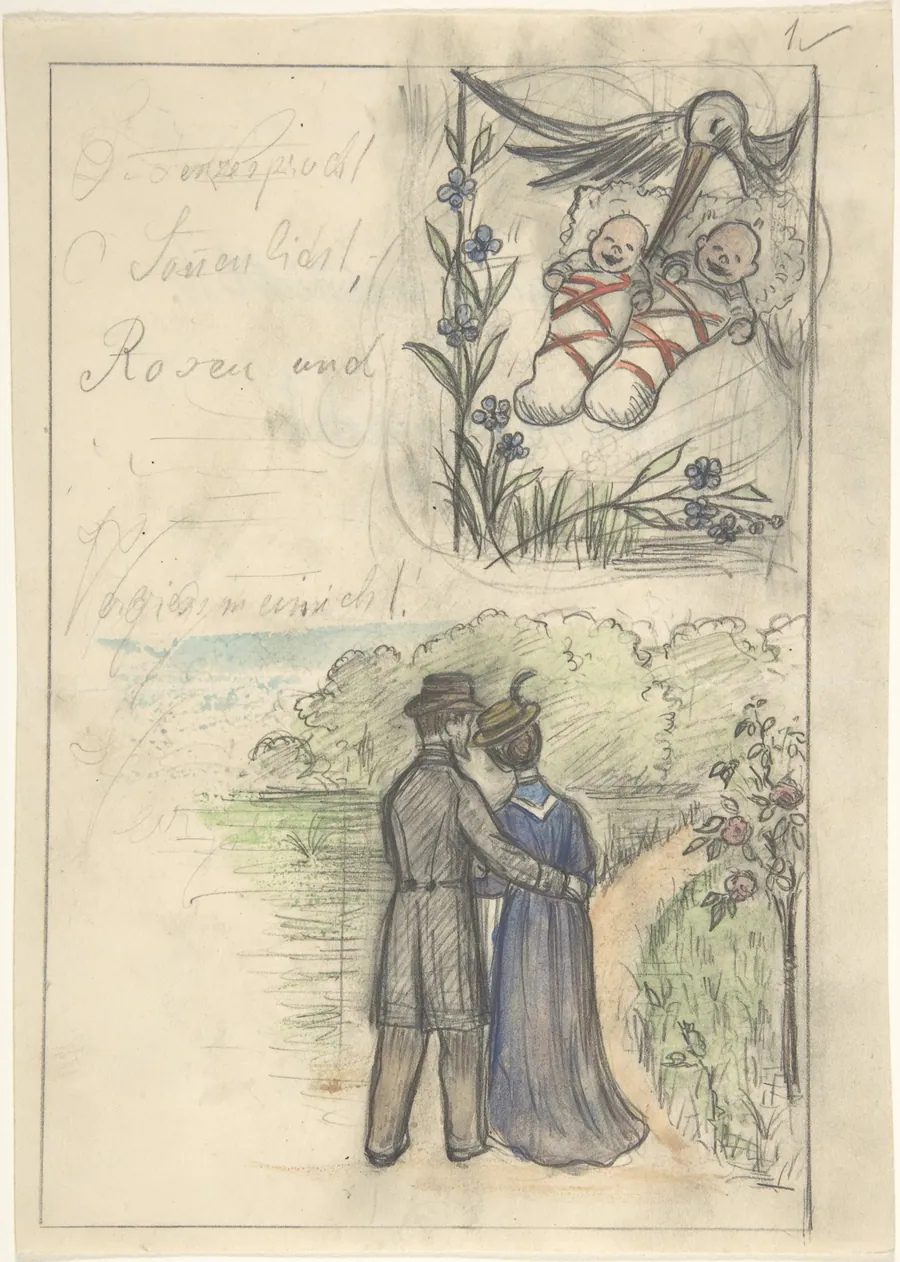 1
Sonnenlicht,
Rosen und
Vergissmeinnicht!